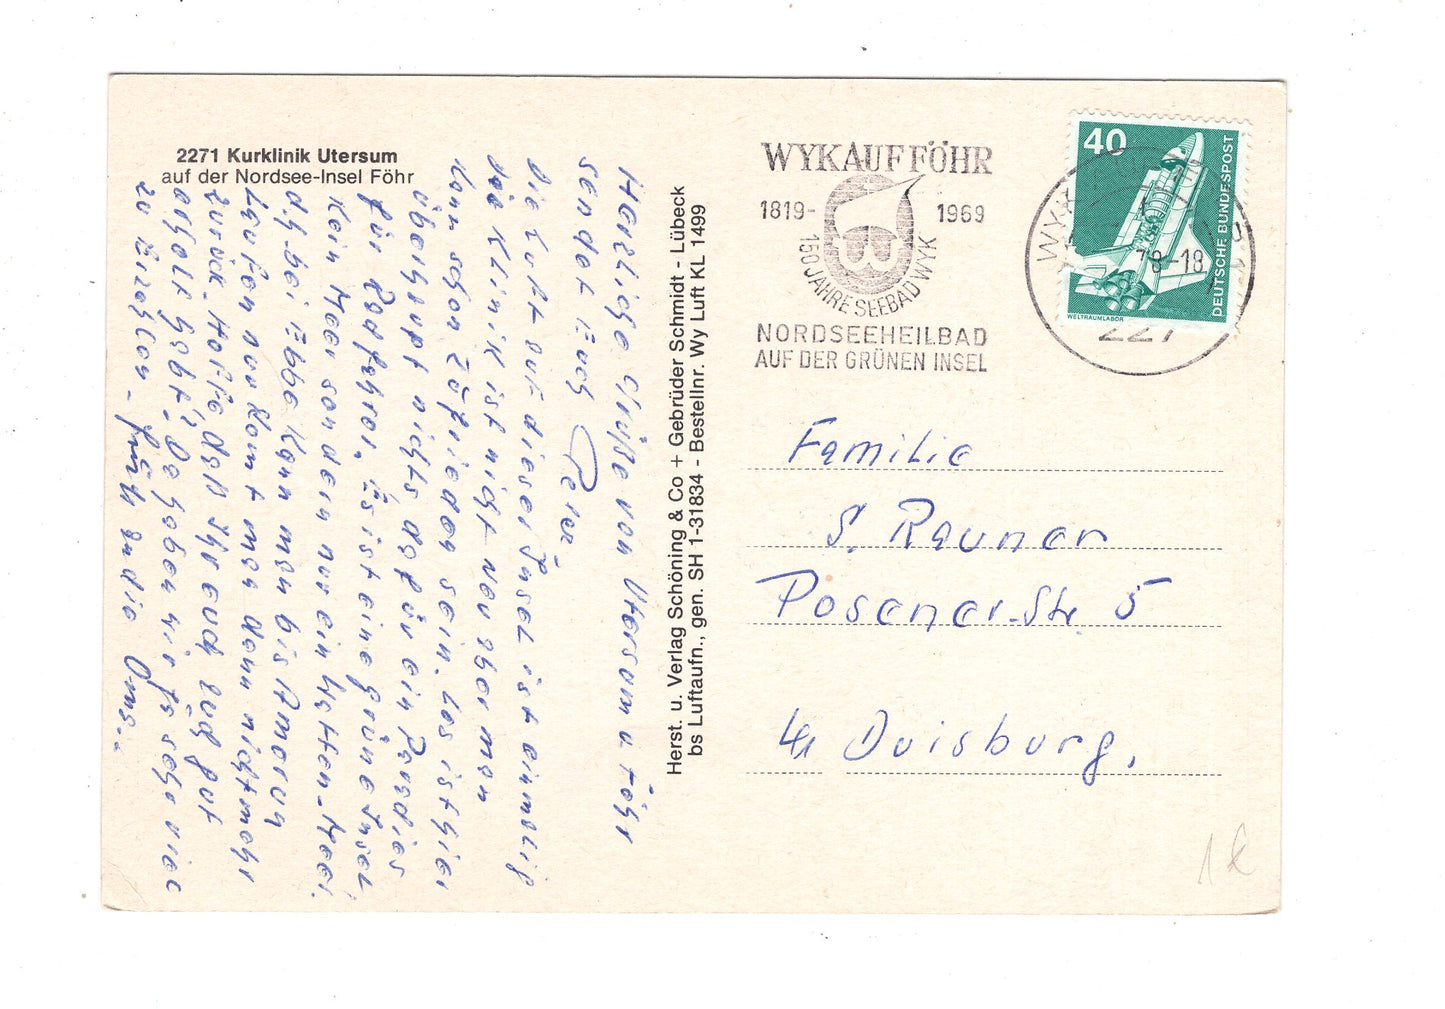 2271 Kurklinik Utersum
auf der Nordsee-Insel Föhr
Herzliche Grüße von Utersum u Föhr
sendet Euch Peter.
Die Luft auf dieser Insel ist einmalig
die Klinik ist nicht neu aber man
kann schon zufrieden sein. Los ist hier
überhaupt nichts dafür ein Paradies
für Radfahrer. Es ist eine grüne Insel
kein Meer sondern nur ein Watten-Meer.
d.h. bei Ebbe kann man bis Amerun
Laufen nur kommt man dann nicht mehr
zurück. Hoffe daß Ihr euch gut
erholt habt. Da haben wir ja sehr viel
zu Erzählen. an die Oma..
Herst. u. Verlag Schöning & Co + Gebrüder Schmidt - Lübeck
bs Luftaufn., gen. SH 1-31834 - Bestellnr. Wy Luft KL 1499
WYK AUF FÖHR
1819-
1969
150 JAHRE SEEBAD WYK
NORDSEEHEILBAD
AUF DER GRÜNEN INSEL
40
DEUTSCHE BUNDESPOST
WELTRAUMLABOR
WYK
78-18
227
Familie
S. Rauner
Posener-Str. 5
41 Duisburg,
1 €